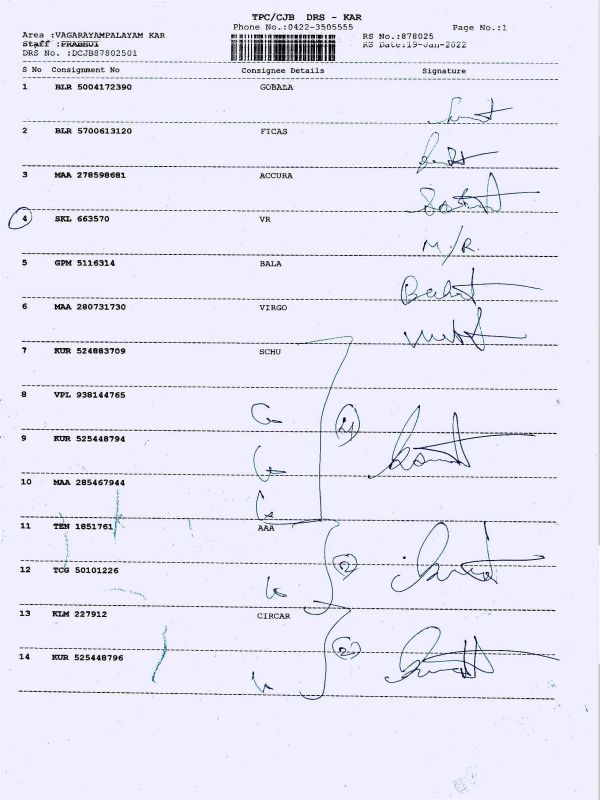 TPC/CJB DRS - KAR
Phone No.:0422-3505555 Page No.:1
Area :VAGARAYAMPALAYAM KAR RS No.:878025
Staff :PRABHUI RS Date:19-Jan-2022
DRS No. :DCJB87802501
S No Consignment No Consignee Details Signature
1 BLR 5004172390 GOBALA
2 BLR 5700613120 FICAS
3 MAA 278598681 ACCURA
4 SKL 663570 VR
M/R.
5 GPM 5116314 BALA
6 MAA 280731730 VIRGO
7 KUR 524883709 SCHU
8 VPL 938144765
9 KUR 525448794
10 MAA 285467944
11 TEN 1851761 AAA
12 TCG 50101226
2
13 KLM 227912 CIRCAR
2
14 KUR 525448796